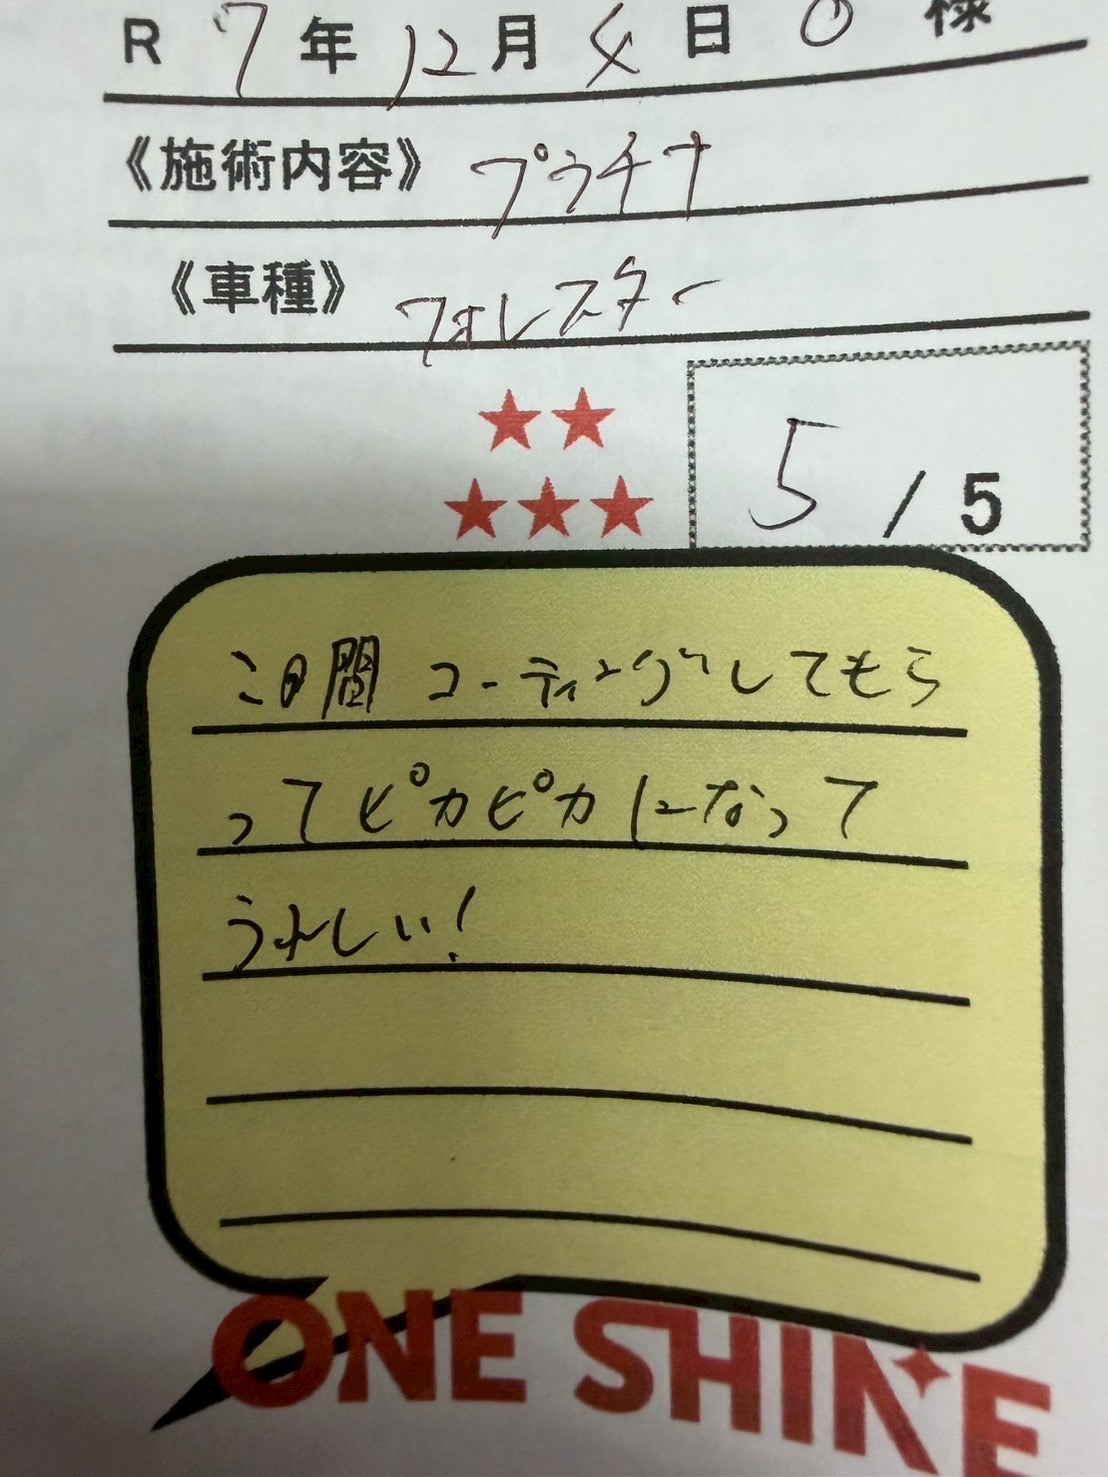 R 7年 12月 4日 O 様
《施術内容》 プラチナ
《車種》 フォレスター
★★
★★★
5 / 5
この間 コーティングしてもら
ってピカピカになって
うれしい!
ONE SHINE